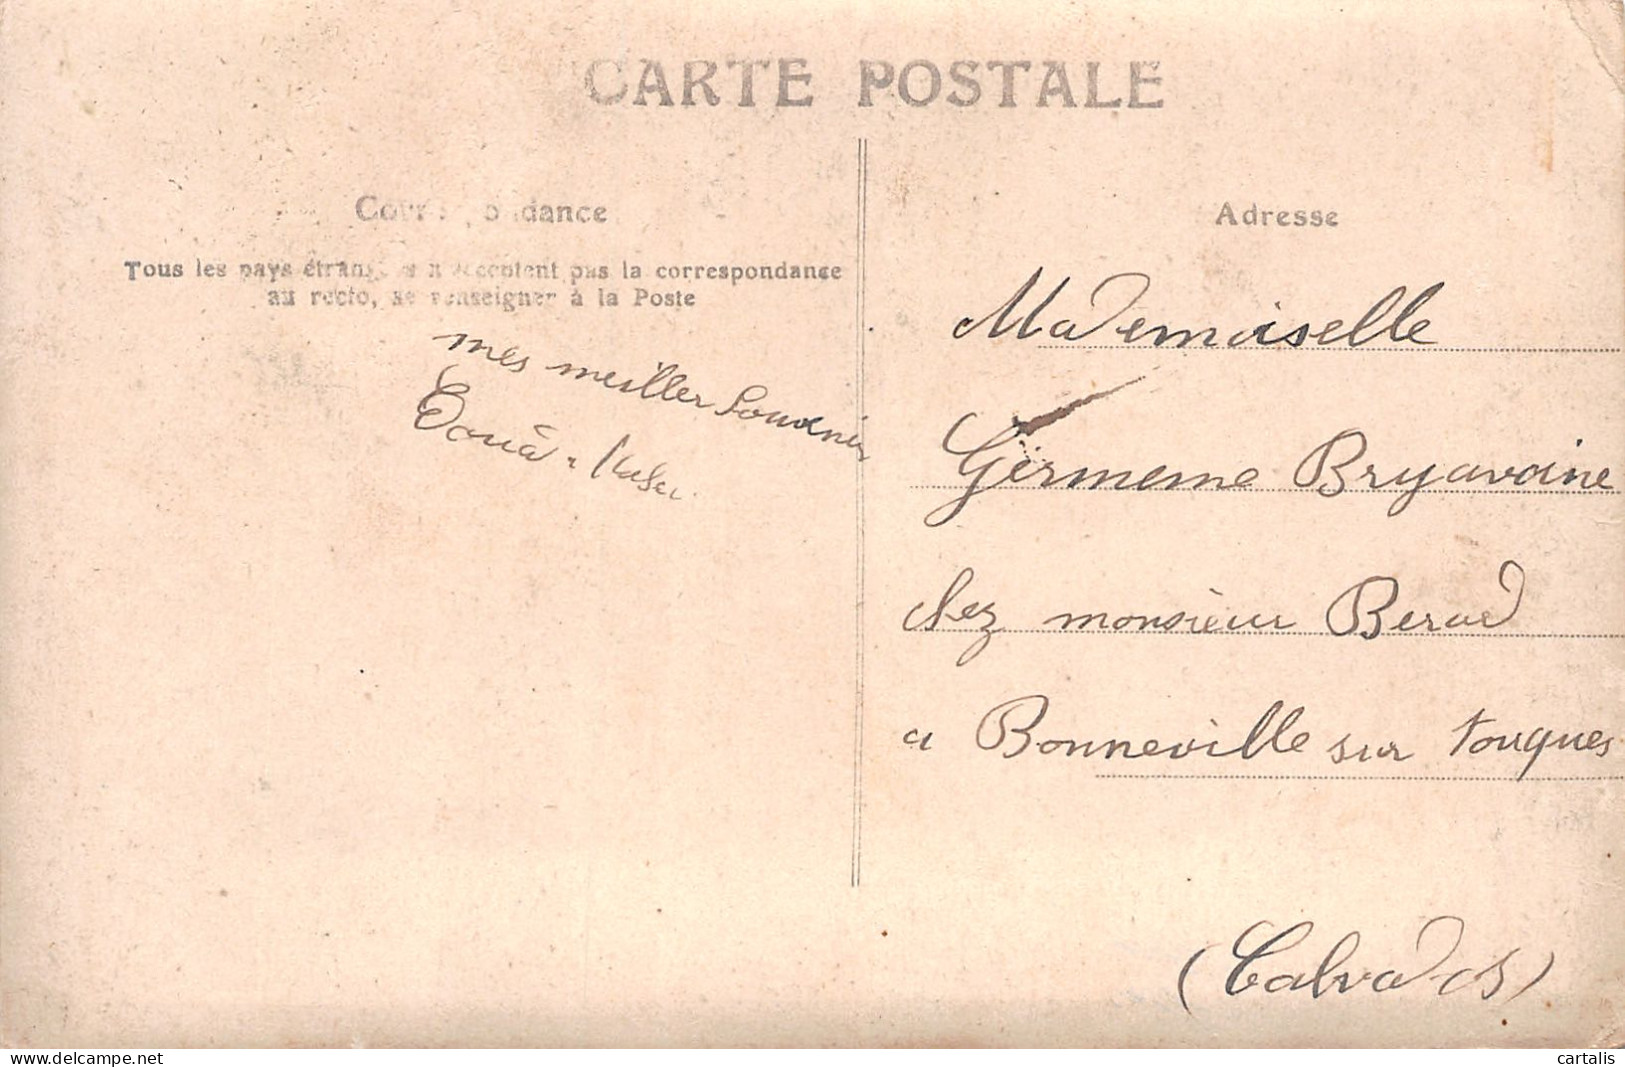 CARTE POSTALE
Correspondance
Tous les pays étrangers n'acceptent pas la correspondance
au recto, se renseigner à la Poste
mes meiller Souvenir
Adresse
Mademoiselle
Germeme Bryavoine
chez monsieur Berard
a Bonneville sur touques
(Calvados)
delcampe.net
cartalis